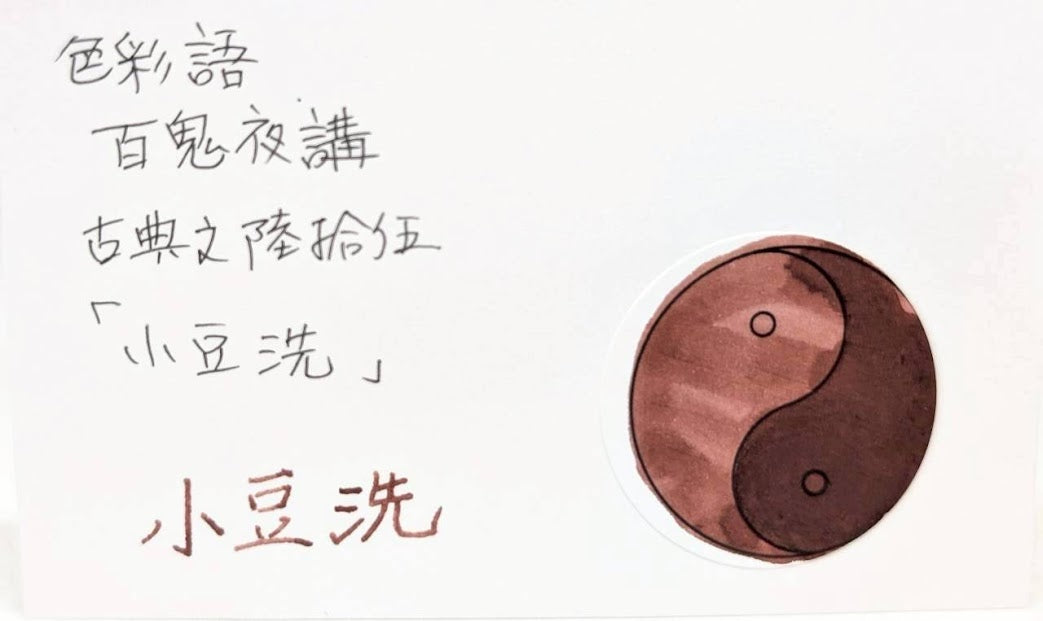 色彩語
百鬼夜講
古典之陸拾伍
「小豆洗」
小豆洗